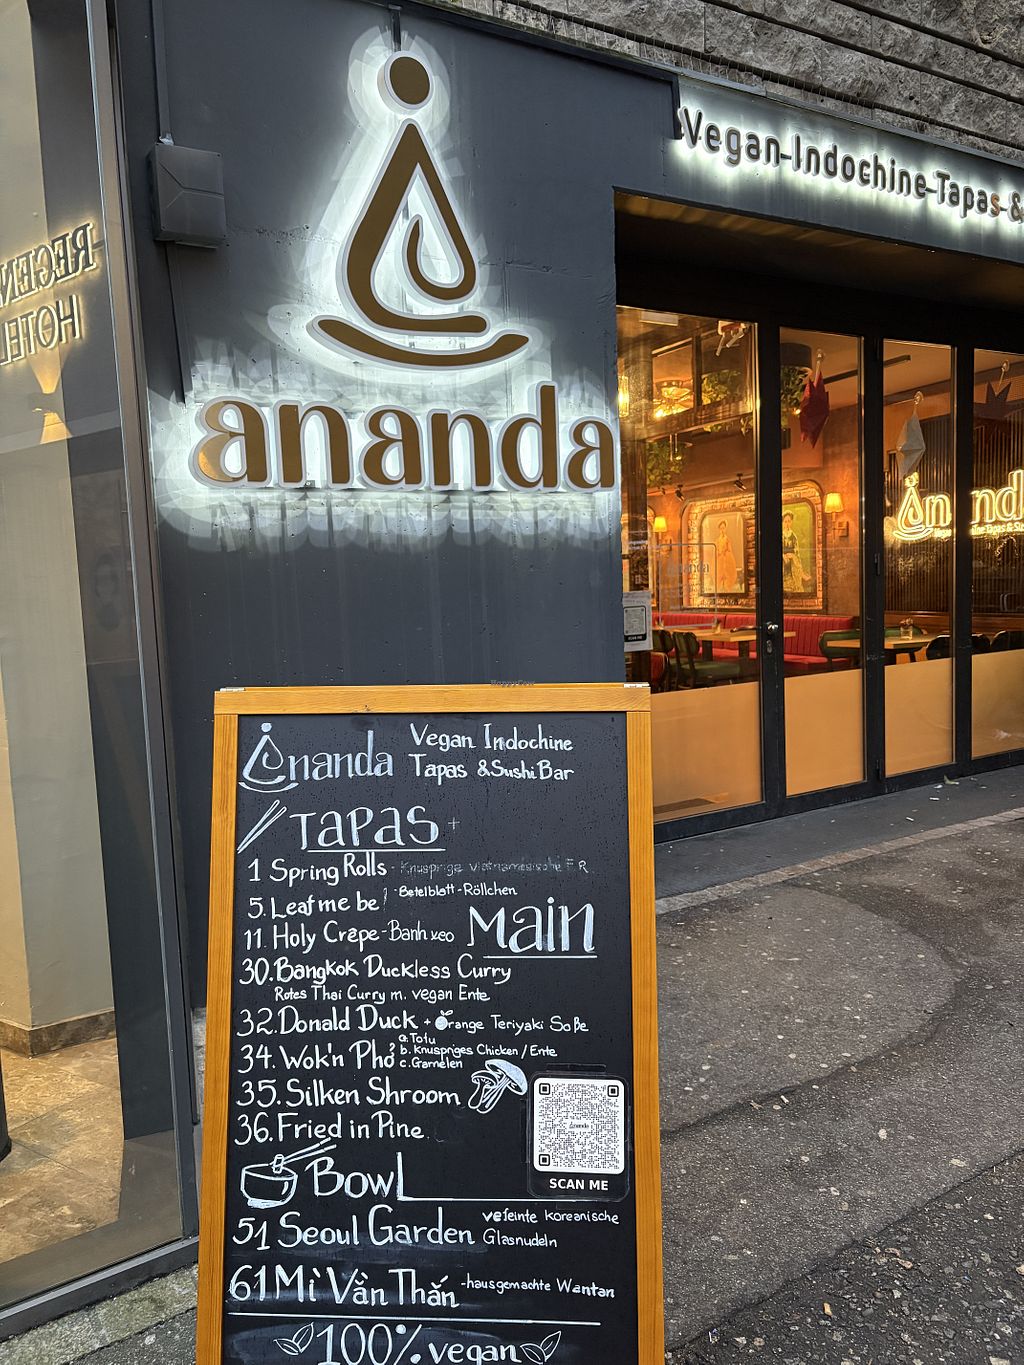 ananda
Vegan-Indochine-Tapas-&
REGEN
HOTEL
SCAN ME
Ananda
Vegan Indochine
Tapas & Sushi Bar
TAPAS
1 Spring Rolls - Knusprige vietnamesische F.R.
5. Leaf me be! - Betelblatt-Röllchen
11. Holy Crêpe - Banh xeo
Main
30. Bangkok Duckless Curry
Rotes Thai Curry m. vegan Ente
32. Donald Duck + Orange Teriyaki Soße
34. Wok'n Phở
a. Tofu
b. Knuspriges Chicken / Ente
c. Garnelen
35. Silken Shroom
36. Fried in Pine
ananda
SCAN ME
Bowl
51 Seoul Garden
vereinte koreanische
Glasnudeln
61 Mì Vằn Thắn - hausgemachte Wantan
100% vegan